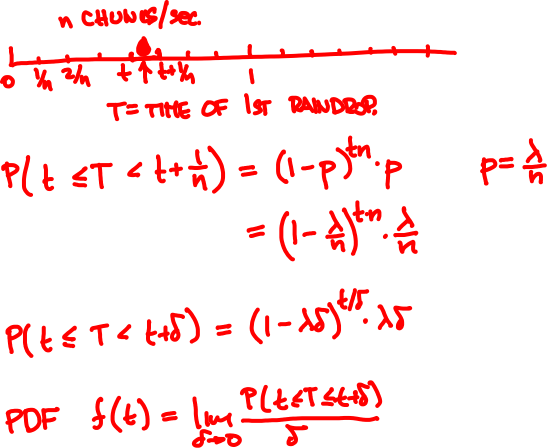 n CHUNKS/sec.
0 1/n 2/n t t+1/n 1
T = TIME OF 1ST RAINDROP.
P(t ≤ T < t + 1/n) = (1-p)^{tn} · p p = λ/n
= (1 - λ/n)^{t·n} · λ/n
P(t ≤ T < t+δ) = (1 - λδ)^{t/δ} · λδ
PDF f(t) = lim_{δ→0} P(t ≤ T ≤ t+δ)/δ